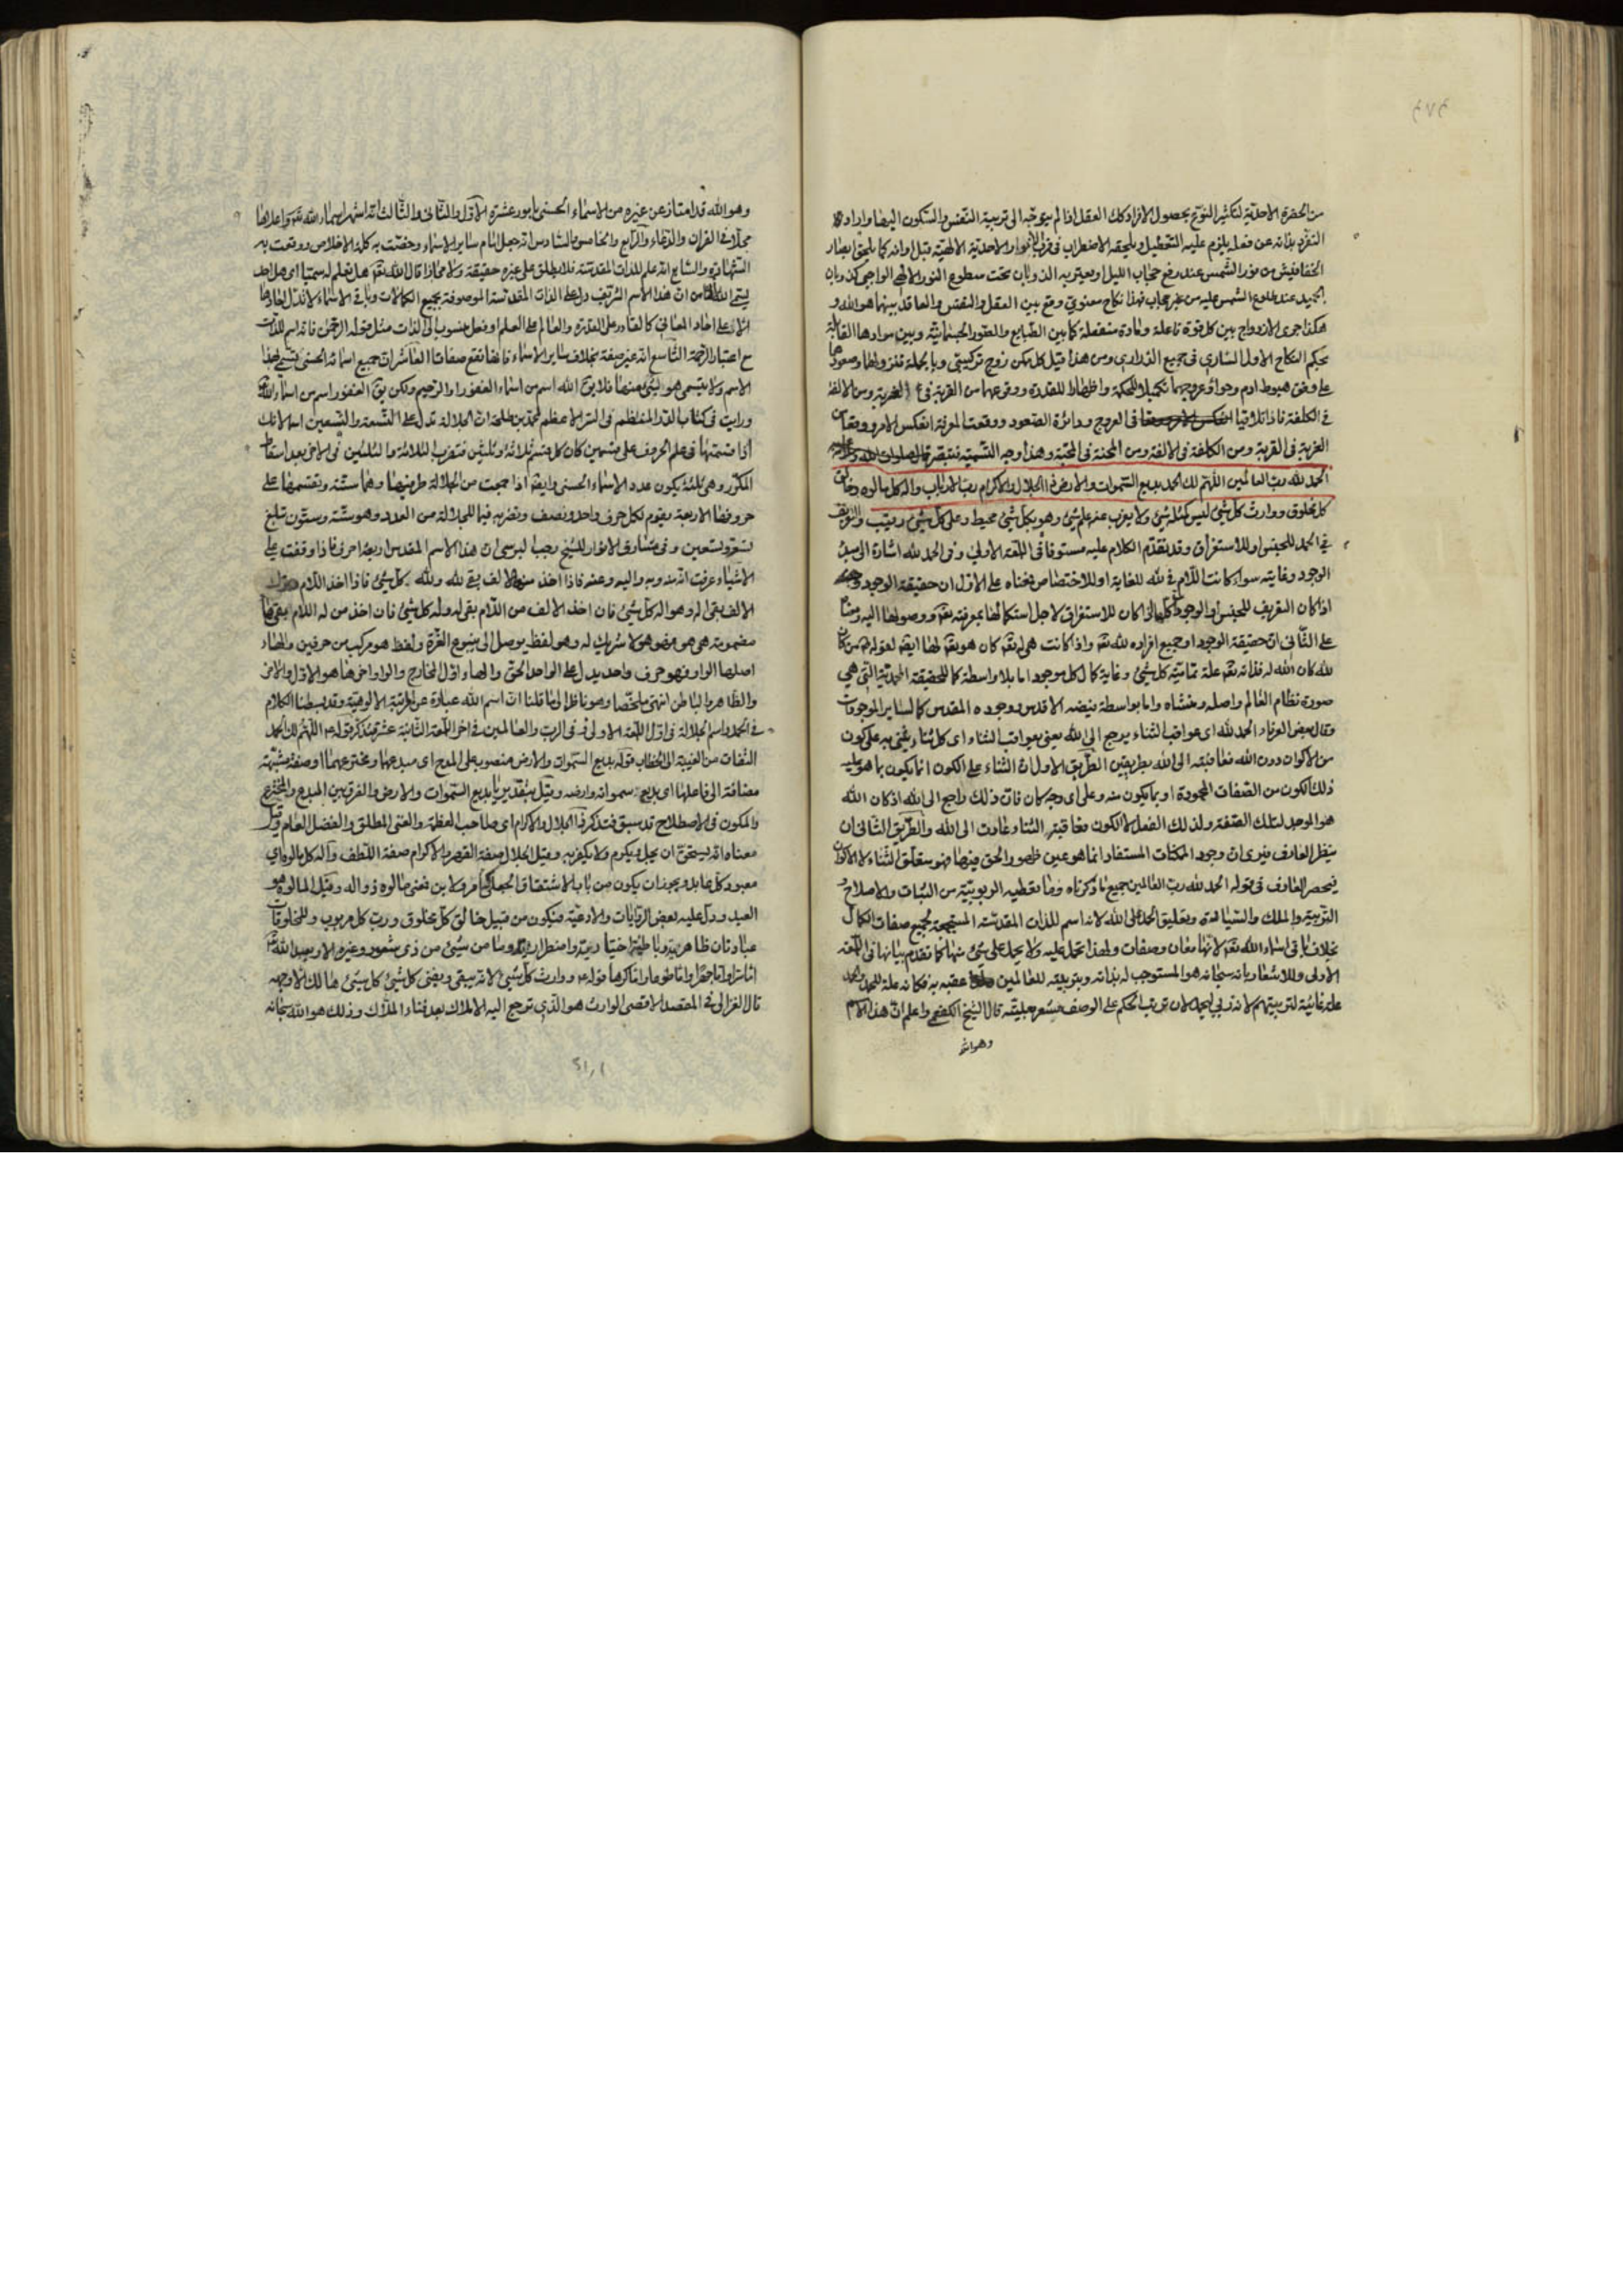 من الحضرة الاحدية لتكثير النوع بحصول الافراد كك العقل اذا لم يتوجه الى تربية النفس والسكون اليها واراد
التفرد بذاته عن فعله يلزم عليه التعطيل ويلحقه الاضطراب في قرب الانوار الاحدية الالهية قبل اوانه كما يلحق ابصار
الخفافيش من نور الشمس عند رفع حجاب الليل او يعتريه الذوبان تحت سطوع النور الالهي الواجبي كذوبان
الجميد عند طلوع الشمس عليه من غير حجاب فهذا نكاح معنوي وقع بين العقل والنفس والعاقد بينهما هو الله و
هكذا جرى الازدواج بين كل قوة فاعلة ومادة منفعلة كما بين الطبايع والصور الجسمانية وبين موادها القابلة
بحكم النكاح الاول الساري في جميع الذراري ومن هذا قيل كل ممكن زوج تركيبي وبالجملة
على وفق هبوط ادم وحوا وعروجهما تكميلا للحكمة واظهارا للقدرة ووقوعهما من القربة في الغربة ومن الالفة
في الكلفة فاذا تلاقيا في العروج ودائرة الصعود ووقعت المعرفة انعكس الامر ووقعا من
الغربة في القربة ومن الكلفة في الالفة ومن المحنة في المحبة وهذا وجه التسمية فتبصر قال صلوات الله وسلامه عليه
الحمد لله رب العالمين اللهم لك الحمد بديع السموات والارض ذا الجلال والاكرام رب الارباب واله كل مالوه وخالق
كل مخلوق ووارث كل شئ ليس كمثله شئ ولا يعزب عنه علم شئ وهو بكل شئ محيط وعلى كل شئ رقيب والتعريف
في الحمد للجنس او للاستغراق وقد تقدم الكلام عليه مستوفا في اللمعة الاولى وفي الحمد لله اشارة الى مبدء
الوجود وغايته سواء كانت اللام في لله للغاية او للاختصاص فمعناه على الاول ان حقيقة الوجود
اذا كان التعريف للجنس او الوجود كله اذا كان للاستغراق لاجل استكمالها بمعرفته تعه ووصولها اليه ومعناه
على الثاني ان حقيقة الوجود او جميع افراده لله تعه واذا كانت هي له تعه كان هو تعه لها ايضه لقوله من كان
لله كان الله له فذاته تعه علة تمامية كل شئ وغاية كمال كل موجود اما بلا واسطة كما للحقيقة المحمدية التي هي
صورة نظام العالم واصله ومنشاه واما بواسطة فيضه الاقدس ووجوده المقدس كما لساير الموجودات
وقال بعض العرفاء الحمد لله اى عواقب الثناء يرجع الى الله يعني بعواقب الثناء اى كل ثناء يثنى به على كون
من الاكوان دون الله فعاقبته الى الله بطريقين الطريق الاول ان الثناء على الكون انما يكون بما هو عليه
ذلك الكون من الصفات المحمودة او بما يكون منه وعلى اى وجه كان فان ذلك راجع الى الله اذ كان الله
هو الموجد لتلك الصفة ولذلك الفعل لا الكون فعاقبة الثناء عادت الى الله والطريق الثاني ان
ينظر العارف فيرى ان وجود الممكنات المستفاد انما هو عين ظهور الحق فيها فهو متعلق الثناء لا الاكوان
فيحصر العارف في قوله الحمد لله رب العالمين جميع ما ذكرناه وما تعطيه الربوبية من الثبات والاصلاح و
التربية والملك والسيادة وتعليق الحمد على الله لانه اسم للذات المقدسة المستجمعة لجميع صفات الكمال
بخلاف باقي اسماء الله تعه لانها معان وصفات ولهذا تحمل عليه ولا يحمل على شئ منها كما تقدم بيانها في اللمعة
الاولى وللاشعار بانه سبحانه هو المستوجب له بذاته وبتربيته للعالمين عقبه به فكانه علة للحمد والحمد
علة غائية لتربيتهم لانه ربي ليحمد لان ترتب الحكم على الوصف مشعر بعليته قال الشيخ الكفعمي واعلم ان هذا الاسم
وهو الله
وهو الله قد امتاز عن غيره من الاسماء الحسنى بامور عشرة الاول والثاني والثالث انه اشهر اسماء الله تعه واعلاها
محلا في القران والدعاء والرابع والخامس والسادس انه جعل امام ساير الاسماء وخصت به كلمة الاخلاص ووقعت به
الشهادة والسابع انه علم للذات المقدسة فلا يطلق على غيره حقيقة ولا مجازا قال الله تعه هل تعلم له سميا اى هل احد
يسمى الله الثامن ان هذا الاسم الشريف دل على الذات المقدسة الموصوفة بجميع الكمالات وباقي الاسماء لا تدل احادها
الا على احاد المعاني كالقادر على القدرة والعالم على العلم او فعل منسوب الى الذات مثل قوله الرحمن فانه اسم للذات
مع اعتبار الرحمة التاسع انه غير صفة بخلاف ساير الاسماء فانها تقع صفات العاشر ان جميع اسمائه الحسنى تسمى بهذا
الاسم ولا يتسمى هو بشئ منها فلا يق الله اسم من اسماء الغفور او الرحيم ولكن يق الغفور اسم من اسماء الله
ورايت في كتاب الدر المنتظم في السر الاعظم لمحمد بن طلحة ان الجلالة تدل على التسعة والتسعين اسما لانك
اذا قسمتها في علم الحروف على قسمين كان كل قسم ثلاثة وثلثين فتضرب الثلاثة والثلثين في الاحرف بعد اسقاط
المكرر وهي ثلثة يكون عدد الاسماء الحسنى وايضه اذا جمعت من الجلالة طرفيها وهما ستة وتقسمها على
حروفها الاربعة يقوم لكل حرف واحد ونصف وتضربه فيما للجلالة من العدد وهو ستة وستون تبلغ
تسعة وتسعين وفي مشارق الانوار للشيخ رجب البرسي ان هذا الاسم المقدس اربعة احرف فاذا وقفت على
الاشياء عرفت انه منه وبه واليه وعنه فاذا اخذ منه الالف بقي لله ولله كل شئ فاذا اخذ اللام وترك
الالف بقي اله وهو اله كل شئ فان اخذ الالف من اللام بقي له وله كل شئ فان اخذ من له اللام بقي هاء
مضمومة هي هو فهو هو لا شريك له وهو لفظ يوصل الى ينبوع العزة ولفظ هو مركب من حرفين والهاء
اصلها الواو فهو حرف واحد يدل على الواحد الحق والهاء اول المخارج والواو اخرها هو الاول والاخر
والظاهر والباطن انتهى ملخصا وهو ناظر الى ما قلنا ان اسم الله عبارة عن مرتبة الالوهية وقد بسطنا الكلام
في الحمد واسم الجلالة في اول اللمعة الاولى وفي الرب والعالمين في اخر اللمعة الثانية عشر فتذكر قوله ع اللهم لك الحمد
التفات من الغيبة الى الخطاب قوله بديع السموات والارض منصوب على المدح اى مبدعهما ومخترعهما او صفة مشبهة
مضافة الى فاعلها اى بديع سمواته وارضه وقيل بتقدير يا بديع السموات والارض والفرق بين المبدع والمخترع
والمكون في الاصطلاح قد سبق فتذكر ذا الجلال والاكرام اى صاحب العظمة والغنى المطلق والفضل العام وقيل
معناه انه يستحق ان يجل ويكرم ولا يكفر به وقيل الجلال صفة القهر والاكرام صفة اللطف واله كل مالوه اي
معبود كل عابد ويجوز ان يكون من باب الاشتقاق الجعلي كتامر ولابن فمعنى مالوه ذو اله وقيل المالوه هو
العبد ودل عليه بعض الروايات والادعية فيكون من قبيل خالق كل مخلوق ورب كل مربوب وللمخلوقات
عبادتان ظاهرية وباطنية اختيارية واضطرارية وما من شئ من ذي شعور وغيره الا ويعبد الله تعه
اما سرا واما جهرا واما طوعا واما كرها قوله ع ووارث كل شئ لانه يبقى ويفنى كل شئ كل شئ هالك الا وجهه
قال الغزالي في المقصد الاقصى الوارث هو الذي ترجع اليه الاملاك بعد فناء الملاك وذلك هو الله سبحانه